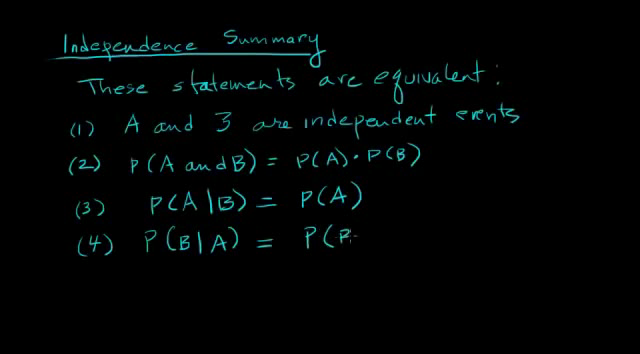 Independence Summary
These statements are equivalent:
(1) A and B are independent events
(2) P(A and B) = P(A) · P(B)
(3) P(A|B) = P(A)
(4) P(B|A) = P(B